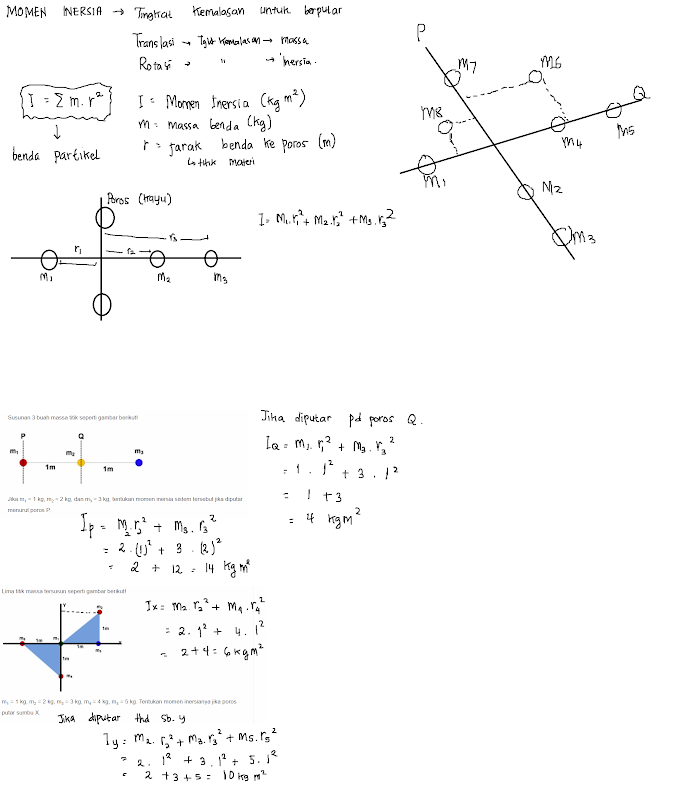 MOMEN INERSIA → Tingkat Kemalasan untuk berputar
Translasi → Tgkt Kemalasan → massa
Rotasi → " → inersia.
I = Σ m. r²
benda partikel
I = Momen Inersia (kg m²)
m = massa benda (kg)
r = jarak benda ke poros (m)
↳ titik materi
P
M7
M6
Q
M8
M4
M5
M1
M2
M3
Poros (Kayu)
r3
r1
r2
m1
m2
m3
I = M1.r1² + M2.r2² + M3.r3²
Susunan 3 buah massa titik seperti gambar berikut!
P
Q
m1
m2
m3
1m
1m
Jika m1 = 1 kg, m2 = 2 kg, dan m3 = 3 kg, tentukan momen inersia sistem tersebut jika diputar
menurut poros P!
Ip = M2.r2² + m3.r3²
= 2.(1)² + 3.(2)²
= 2 + 12 = 14 kg m²
Jika diputar pd poros Q.
IQ = m1.r1² + M3.r3²
= 1.1² + 3.1²
= 1 + 3
= 4 kgm²
Lima titik massa tersusun seperti gambar berikut!
Y
1m
1m
1m
1m
m1 = 1 kg, m2 = 2 kg, m3 = 3 kg, m4 = 4 kg, m5 = 5 kg. Tentukan momen inersianya jika poros
putar sumbu X
Ix = m2.r2² + M4.r4²
= 2.1² + 4.1²
= 2+4 = 6 kgm²
Jika diputar thd sb. y
Iy = M2.r2² + M3.r3² + M5.r5²
= 2.1² + 3.1² + 5.1²
= 2 + 3 + 5 = 10 kg m²